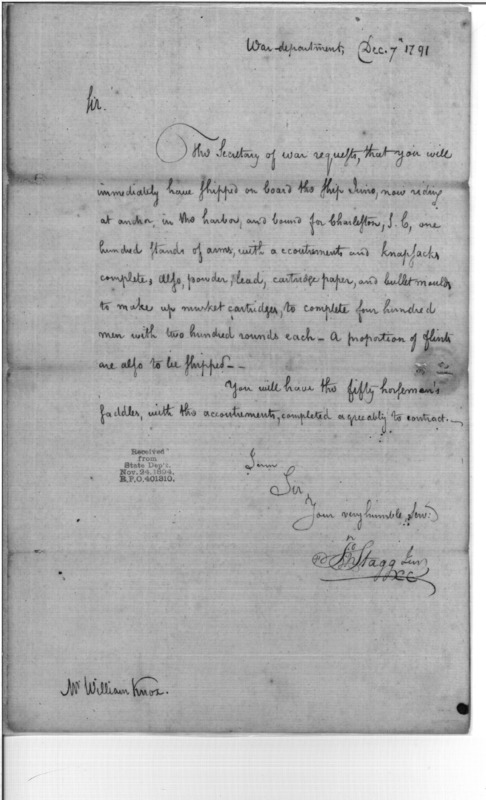 War-department, Dec. 7th 1791
Sir.
The Secretary of war requests, that you will
immediately have shipped on board the ship Juno, now riding
at anchor, in the harbor, and bound for Charleston, S.C, one
hundred stands of arms, with accoutrements and knapsacks
complete, also, powder, lead, cartridge paper, and bullet moulds
to make up musket cartridges, to complete four hundred
men with two hundred rounds each - A proportion of flints
are also to be shipped - -
You will have the fifty horseman's
saddles, with the accoutrements, completed agreeably to contract. -
Received
from
State Dep't.
Nov. 24, 1894,
R.P.O. 401310.
I am
Sir,
Your very humble Serv:
Jno Stagg Junr
Mr William Knox.